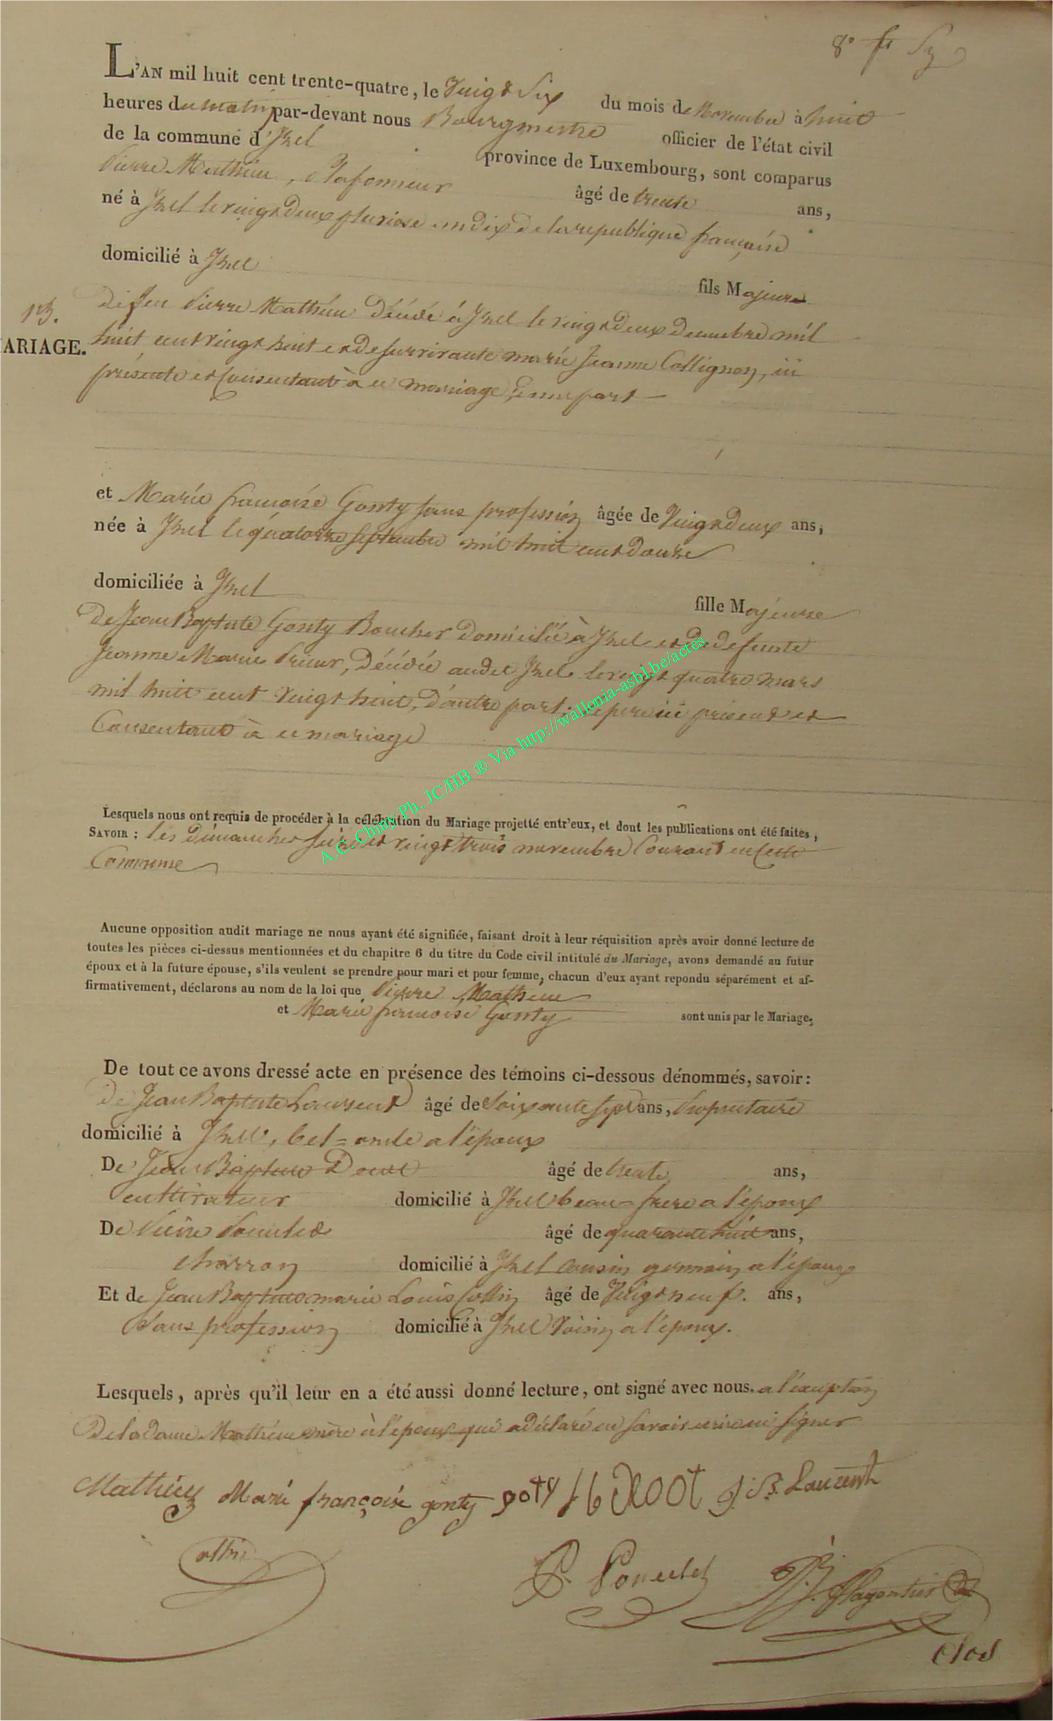 8e
L'AN mil huit cent trente-quatre, le Vingt Six du mois de Novembre à huit
heures du matin par-devant nous Bourgmestre officier de l'état civil
de la commune d'Izel province de Luxembourg, sont comparus
Pierre Mathieu, Plafonneur âgé de trente ans,
né à Izel le vingt deux pluviose an dix de la republique française
domicilié à Izel fils Majeur
13.
MARIAGE.
De feu Pierre Mathieu décédé à Izel le vingt deux decembre mil
huit cent vingt huit et de survivante marie Jeanne Collignon, ici
présente et Consentant à ce mariage, d'une part
et Marie françoise Gonty sans profession âgée de Vingt deux ans,
née à Izel le quatorze septembre mil huit cent douze
domiciliée à Izel fille Majeure
de Jean Baptiste Gonty Boucher domicilié à Izel et de defunte
Jeanne Marie Prieur, décédée audit Izel le vingt quatre mars
mil huit cent vingt huit, d'autre part, le pere ici présent et
Consentant à ce mariage
Lesquels nous ont requis de procéder à la célébration du Mariage projetté entr'eux, et dont les publications ont été faites,
SAVOIR : les dimanches seize et vingt trois novembre Courant en Cette
Commune
Aucune opposition audit mariage ne nous ayant été signifiée, faisant droit à leur réquisition après avoir donné lecture de
toutes les pièces ci-dessus mentionnées et du chapitre 6 du titre du Code civil intitulé du Mariage, avons demandé au futur
époux et à la future épouse, s'ils veulent se prendre pour mari et pour femme, chacun d'eux ayant repondu séparément et af-
firmativement, déclarons au nom de la loi que Pierre Mathieu
et Marie françoise Gonty sont unis par le Mariage.
De tout ce avons dressé acte en présence des témoins ci-dessous dénommés, savoir:
De Jean Baptiste Laurent âgé de Soixante sept ans, Proprietaire
domicilié à Izel, bel-oncle a l'époux
De Jean Baptiste âgé de trente ans,
cultivateur domicilié à Izel beau-frere a l'époux
De Pierre Poncelet âgé de quarante huit ans,
charron domicilié à Izel cousin germain a l'époux
Et de Jean Baptiste marie Louis Collin âgé de Vingt neuf. ans,
Sans profession domicilié à Izel Voisin a l'époux.
Lesquels, après qu'il leur en a été aussi donné lecture, ont signé avec nous. a l'exception
De la dame Mathieu mère à l'époux qui a déclaré ne savoir ecrire ni signer
Mathieu Marie françoise gonty goty J. B. Laurent
P. Poncelet
Clos
A.C. Chiny Ph. JC/HB ® Via http://wallonia-asbl.be/actes